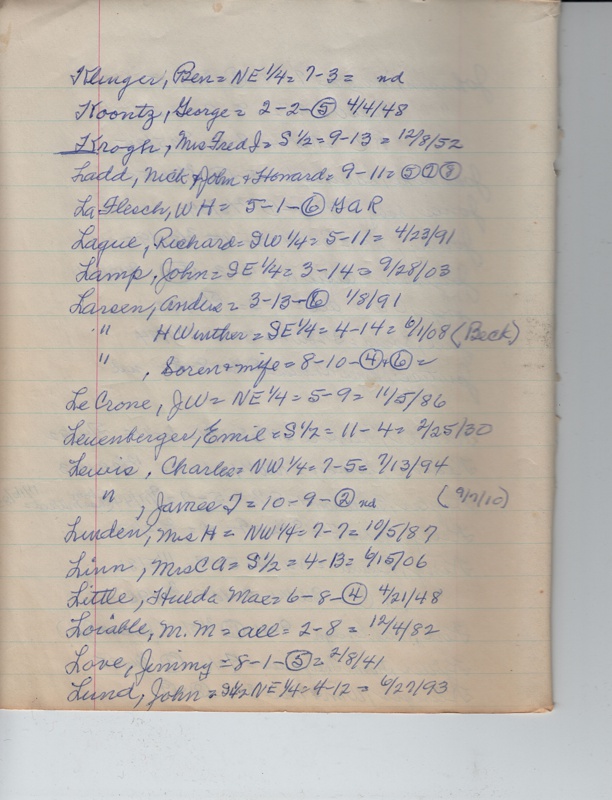 Klinger, Ben = NE 1/4 = 7-3 = nd
Koontz, George = 2-2-⑤ 4/4/48
Krogh, Mrs Fred J = S 1/2 = 9-13 = 12/8/52
Ladd, Nick & John & Howard = 9-11 = ⑤⑦⑧
LaFlesch, WH = 5-1-⑥ GAR
Lague, Richard = SW 1/4 = 5-11 = 4/23/91
Lamp, John = SE 1/4 = 3-14 = 9/28/03
Larsen, Anders = 3-13-⑥ 1/8/91
" H Winther = SE 1/4 = 4-14 = 6/1/08 (Beck)
" , Soren & wife = 8-10-④+⑥ =
LeCrone, JW = NE 1/4 = 5-9 = 11/5/86
Leuenberger, Emil = S 1/2 = 11-4 = 2/25/30
Lewis, Charles = NW 1/4 = 7-5 = 7/13/94
" , James T = 10-9-② nd (9/7/10)
Linden, Mrs H = NW 1/4 = 7-7 = 10/5/87
Linn, Mrs CA = S 1/2 = 4-13 = 6/15/06
Little, Hulda Mae = 6-8-④ 4/21/48
Loiable, M.M = all = 2-8 = 12/4/82
Love, Jimmy = 8-1-⑤ = 2/8/41
Lund, John = S 1/2 NE 1/4 = 4-12 = 6/27/93